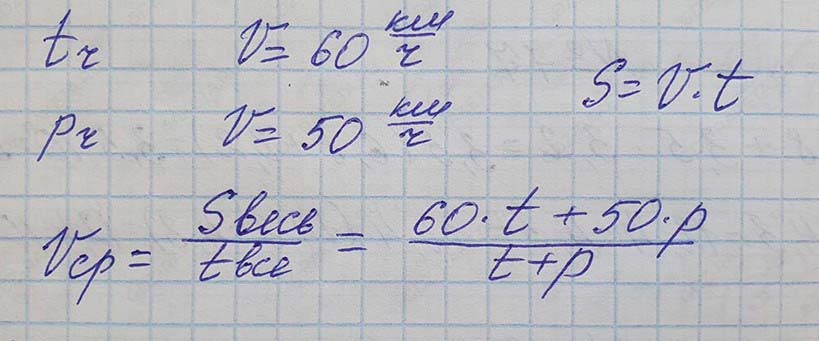 tч V = 60 км/ч
S = V·t
pч V = 50 км/ч
Vср = Sвесь/tвсе = 60·t + 50·p/t+p